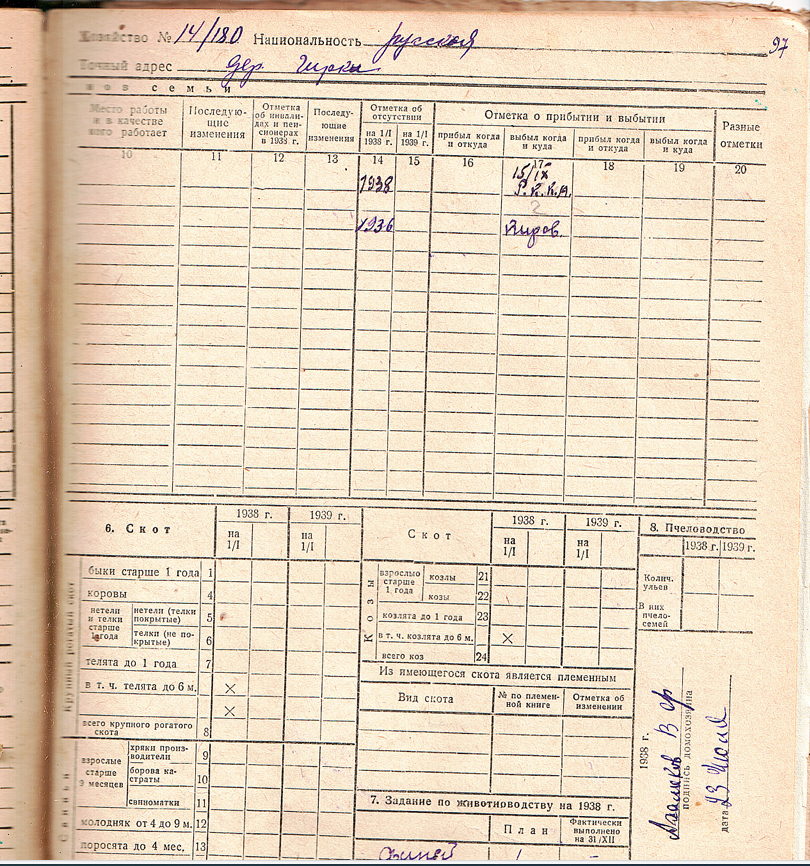 Хозяйство № 14/180 Национальность русская
97
Точный адрес дер.
нов семьи
Место работы и в качестве кого работает
Последующие изменения
Отметка об инвалидах и пенсионерах в 1938 г.
Последующие изменения
Отметка об отсутствии
на 1/I 1938 г.
на 1/I 1939 г.
Отметка о прибытии и выбытии
прибыл когда и откуда
выбыл когда и куда
прибыл когда и откуда
выбыл когда и куда
Разные отметки
10 11 12 13 14 15 16 17 18 19 20
1938 15/IX Р.К.К.А.
2
1936 Киров.
6. Скот
1938 г. 1939 г.
на 1/I на 1/I
Крупный рогатый скот
быки старше 1 года 1
коровы 4
нетели и телки старше 1 года
нетели (телки покрытые) 5
телки (не покрытые) 6
телята до 1 года 7
в т. ч. телята до 6 м. ×
×
всего крупного рогатого скота 8
Свиньи
взрослые старше 9 месяцев
хряки производители 9
борова кастраты 10
свиноматки 11
молодняк от 4 до 9 м. 12
поросята до 4 мес. 13
Скот
1938 г. 1939 г.
на 1/I на 1/I
Козы
взрослые старше 1 года
козлы 21
козы 22
козлята до 1 года 23
в т. ч. козлята до 6 м. ×
всего коз 24
Из имеющегося скота является племенным
Вид скота
№ по племенной книге
Отметка об изменении
7. Задание по животноводству на 1938 г.
План
Фактически выполнено на 31/XII
8. Пчеловодство
1938 г. 1939 г.
Колич. ульев
В них пчелосемей
1938 г.
подпись домохозяина
дата 23 Июля